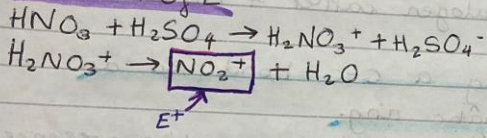 HNO₃ + H₂SO₄ → H₂NO₃⁺ + H₂SO₄⁻
H₂NO₃⁺ → NO₂⁺ + H₂O
E⁺